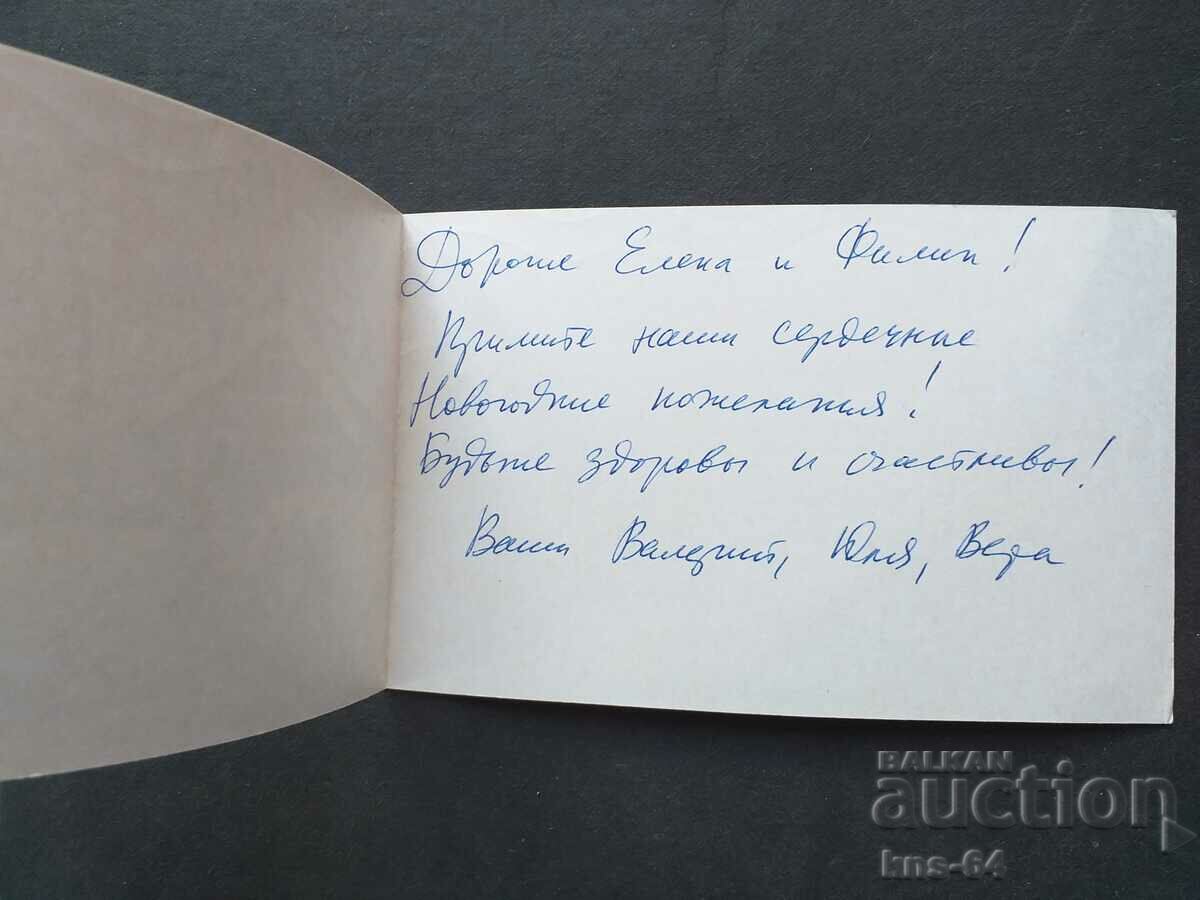 Дорогие Елена и Филип!
Примите наши сердечные
Новогодние пожелания!
Будьте здоровы и счастливы!
Ваши Валерий, Юля, Вера
BALKAN
auction
kns-64